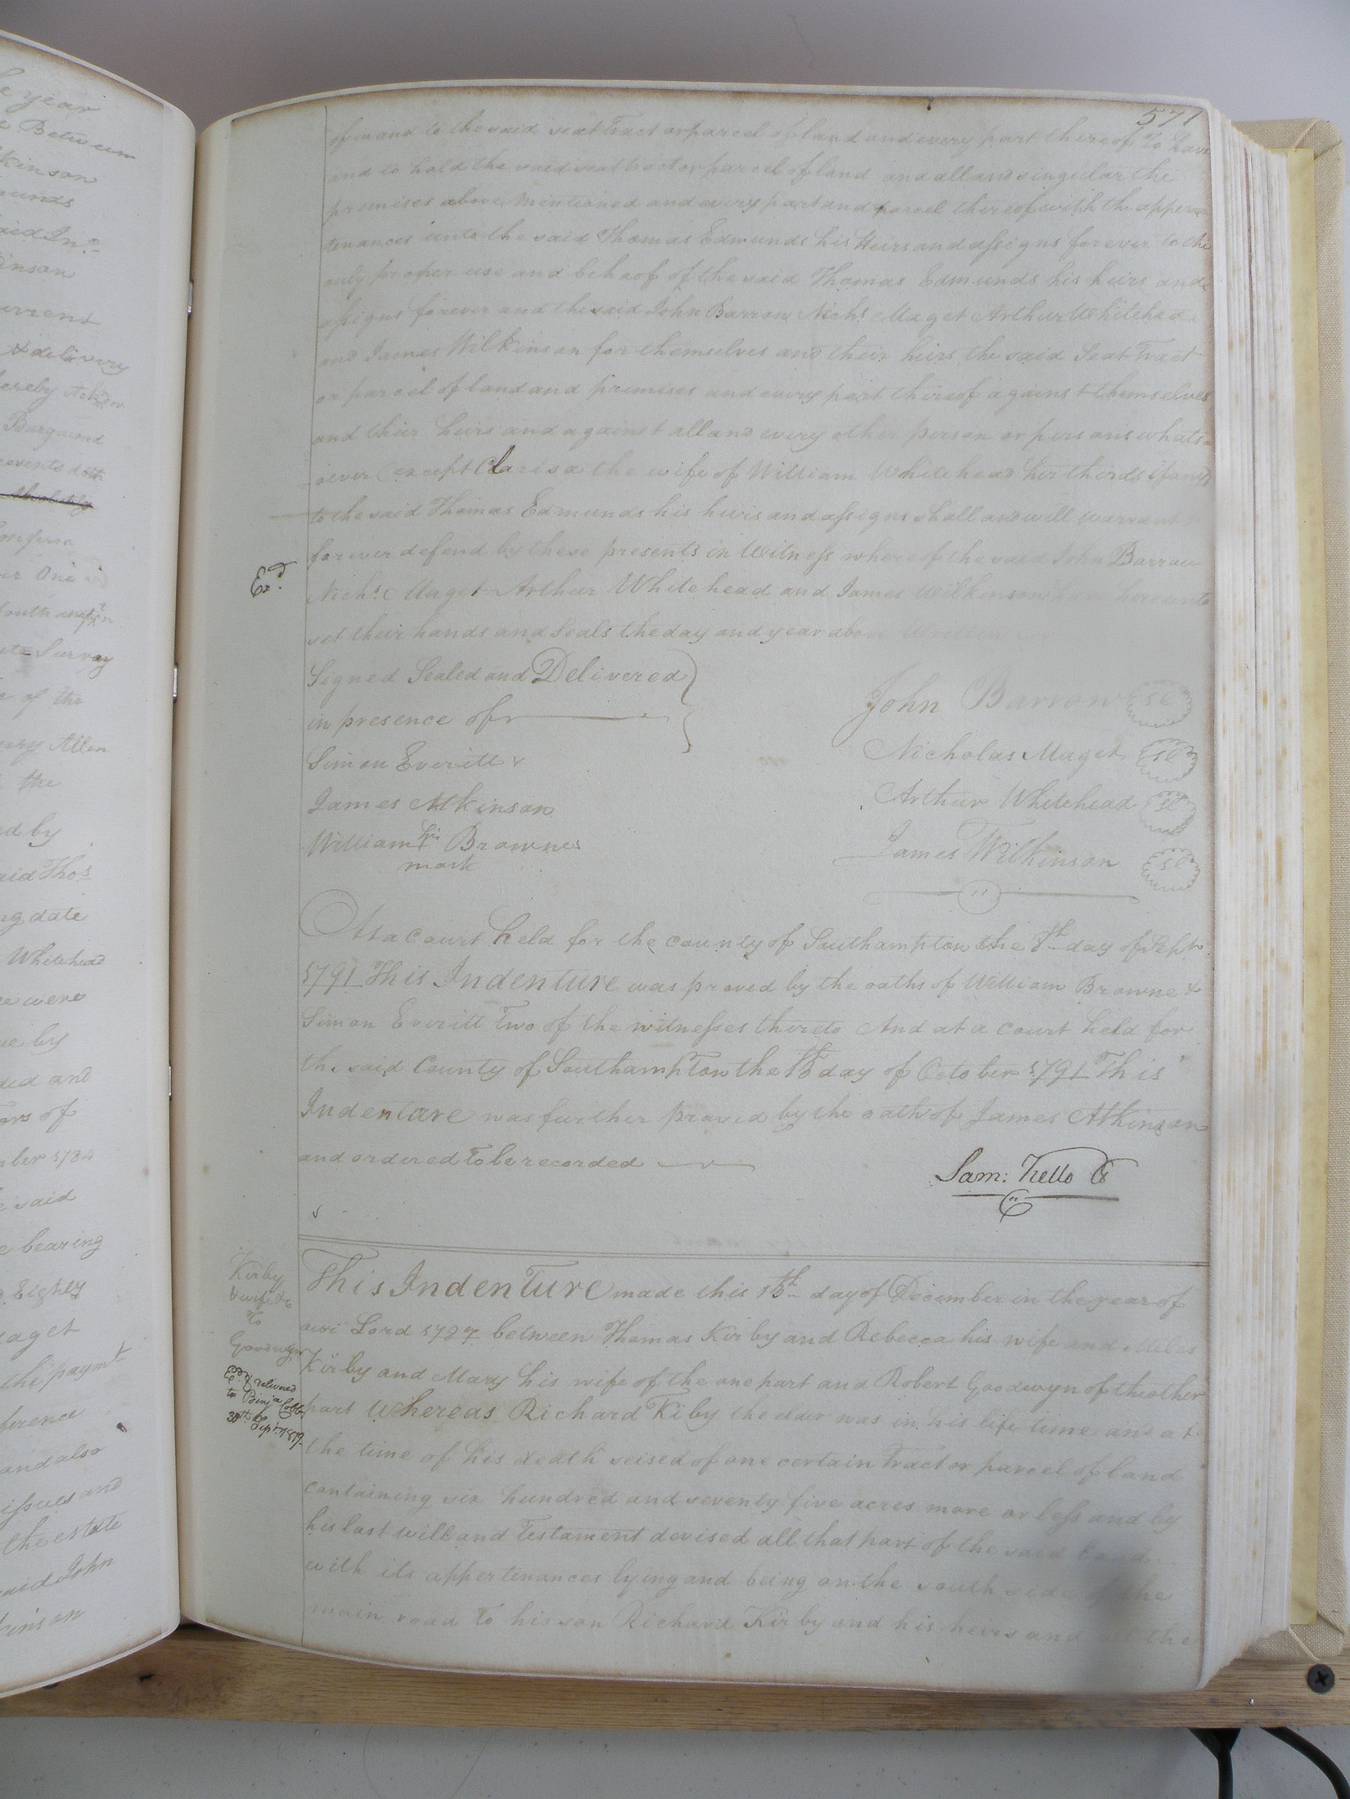 he year
Between
kinson
unds
said In.
inson
urrent
& delivery
hereby Ackn
Bargained
presents doth
Confirm
One
South
Survey
e of the
ury Allen
the
ed by
said Thos.
ng date
Whitehead
were
by
ded and
ars of
mber 1784
said
e bearing
Eighty
aget
the paymt
ference
and also
issues and
the estate
said John
kinson
571
of in and to the said seat Tract or parcel of land and every part thereof To Have
and to hold the said seat tract or parcel of land and all and singular the
premises above mentioned and every part and parcel thereof with the appur-
tenances unto the said Thomas Edmunds his Heirs and assigns forever to the
only proper use and behoof of the said Thomas Edmunds his heirs and
assigns forever and the said John Barrow Nichs. Maget Arthur Whitehead
and James Wilkinson for themselves and their heirs the said Seat Tract
or parcel of land and premises and every part thereof against themselves
and their heirs and against all and every other person or persons whats-
oever (except Clarisa the wife of William Whitehead her thirds if any)
to the said Thomas Edmunds his heirs and assigns shall and will warrant
forever defend by these presents in Witness whereof the said John Barrow
Exd.
Nichs. Maget Arthur Whitehead and James Wilkinson have hereunto
set their hands and Seals the day and year above Written
Signed Sealed and Delivered
in presence of
Simon Everitt
James Atkinson
William his Browne
mark
John Barrow Sl
Nicholas Maget Sl
Arthur Whitehead Sl
James Wilkinson Sl
At a Court held for the county of Southampton the 8th day of Septr.
1791 This Indenture was proved by the oaths of William Browne &
Simon Everitt Two of the witnesses thereto And at a Court held for
the said County of Southampton the 13th day of October 1791 This
Indenture was further proved by the oath of James Atkinson
and ordered To be recorded
Sam: Kello C
Kirby
& wife &c
To
Goodwyn
Exd. & relivred
to Benja Cobb
30th
Sept. 1819
This Indenture made this 15th day of December in the year of
our Lord 1787 between Thomas Kirby and Rebecca his wife and Miles
Kirby and Mary his wife of the one part and Robert Goodwyn of the other
part Whereas Richard Kiby the elder was in his life time and at
the time of his death seised of one certain Tract or parcel of land
containing six hundred and seventy five acres more or less and by
his last will and Testament devised all that part of the said Land
with its appertenances lying and being on the south side of the
main road To his son Richard Kirby and his heirs and all the